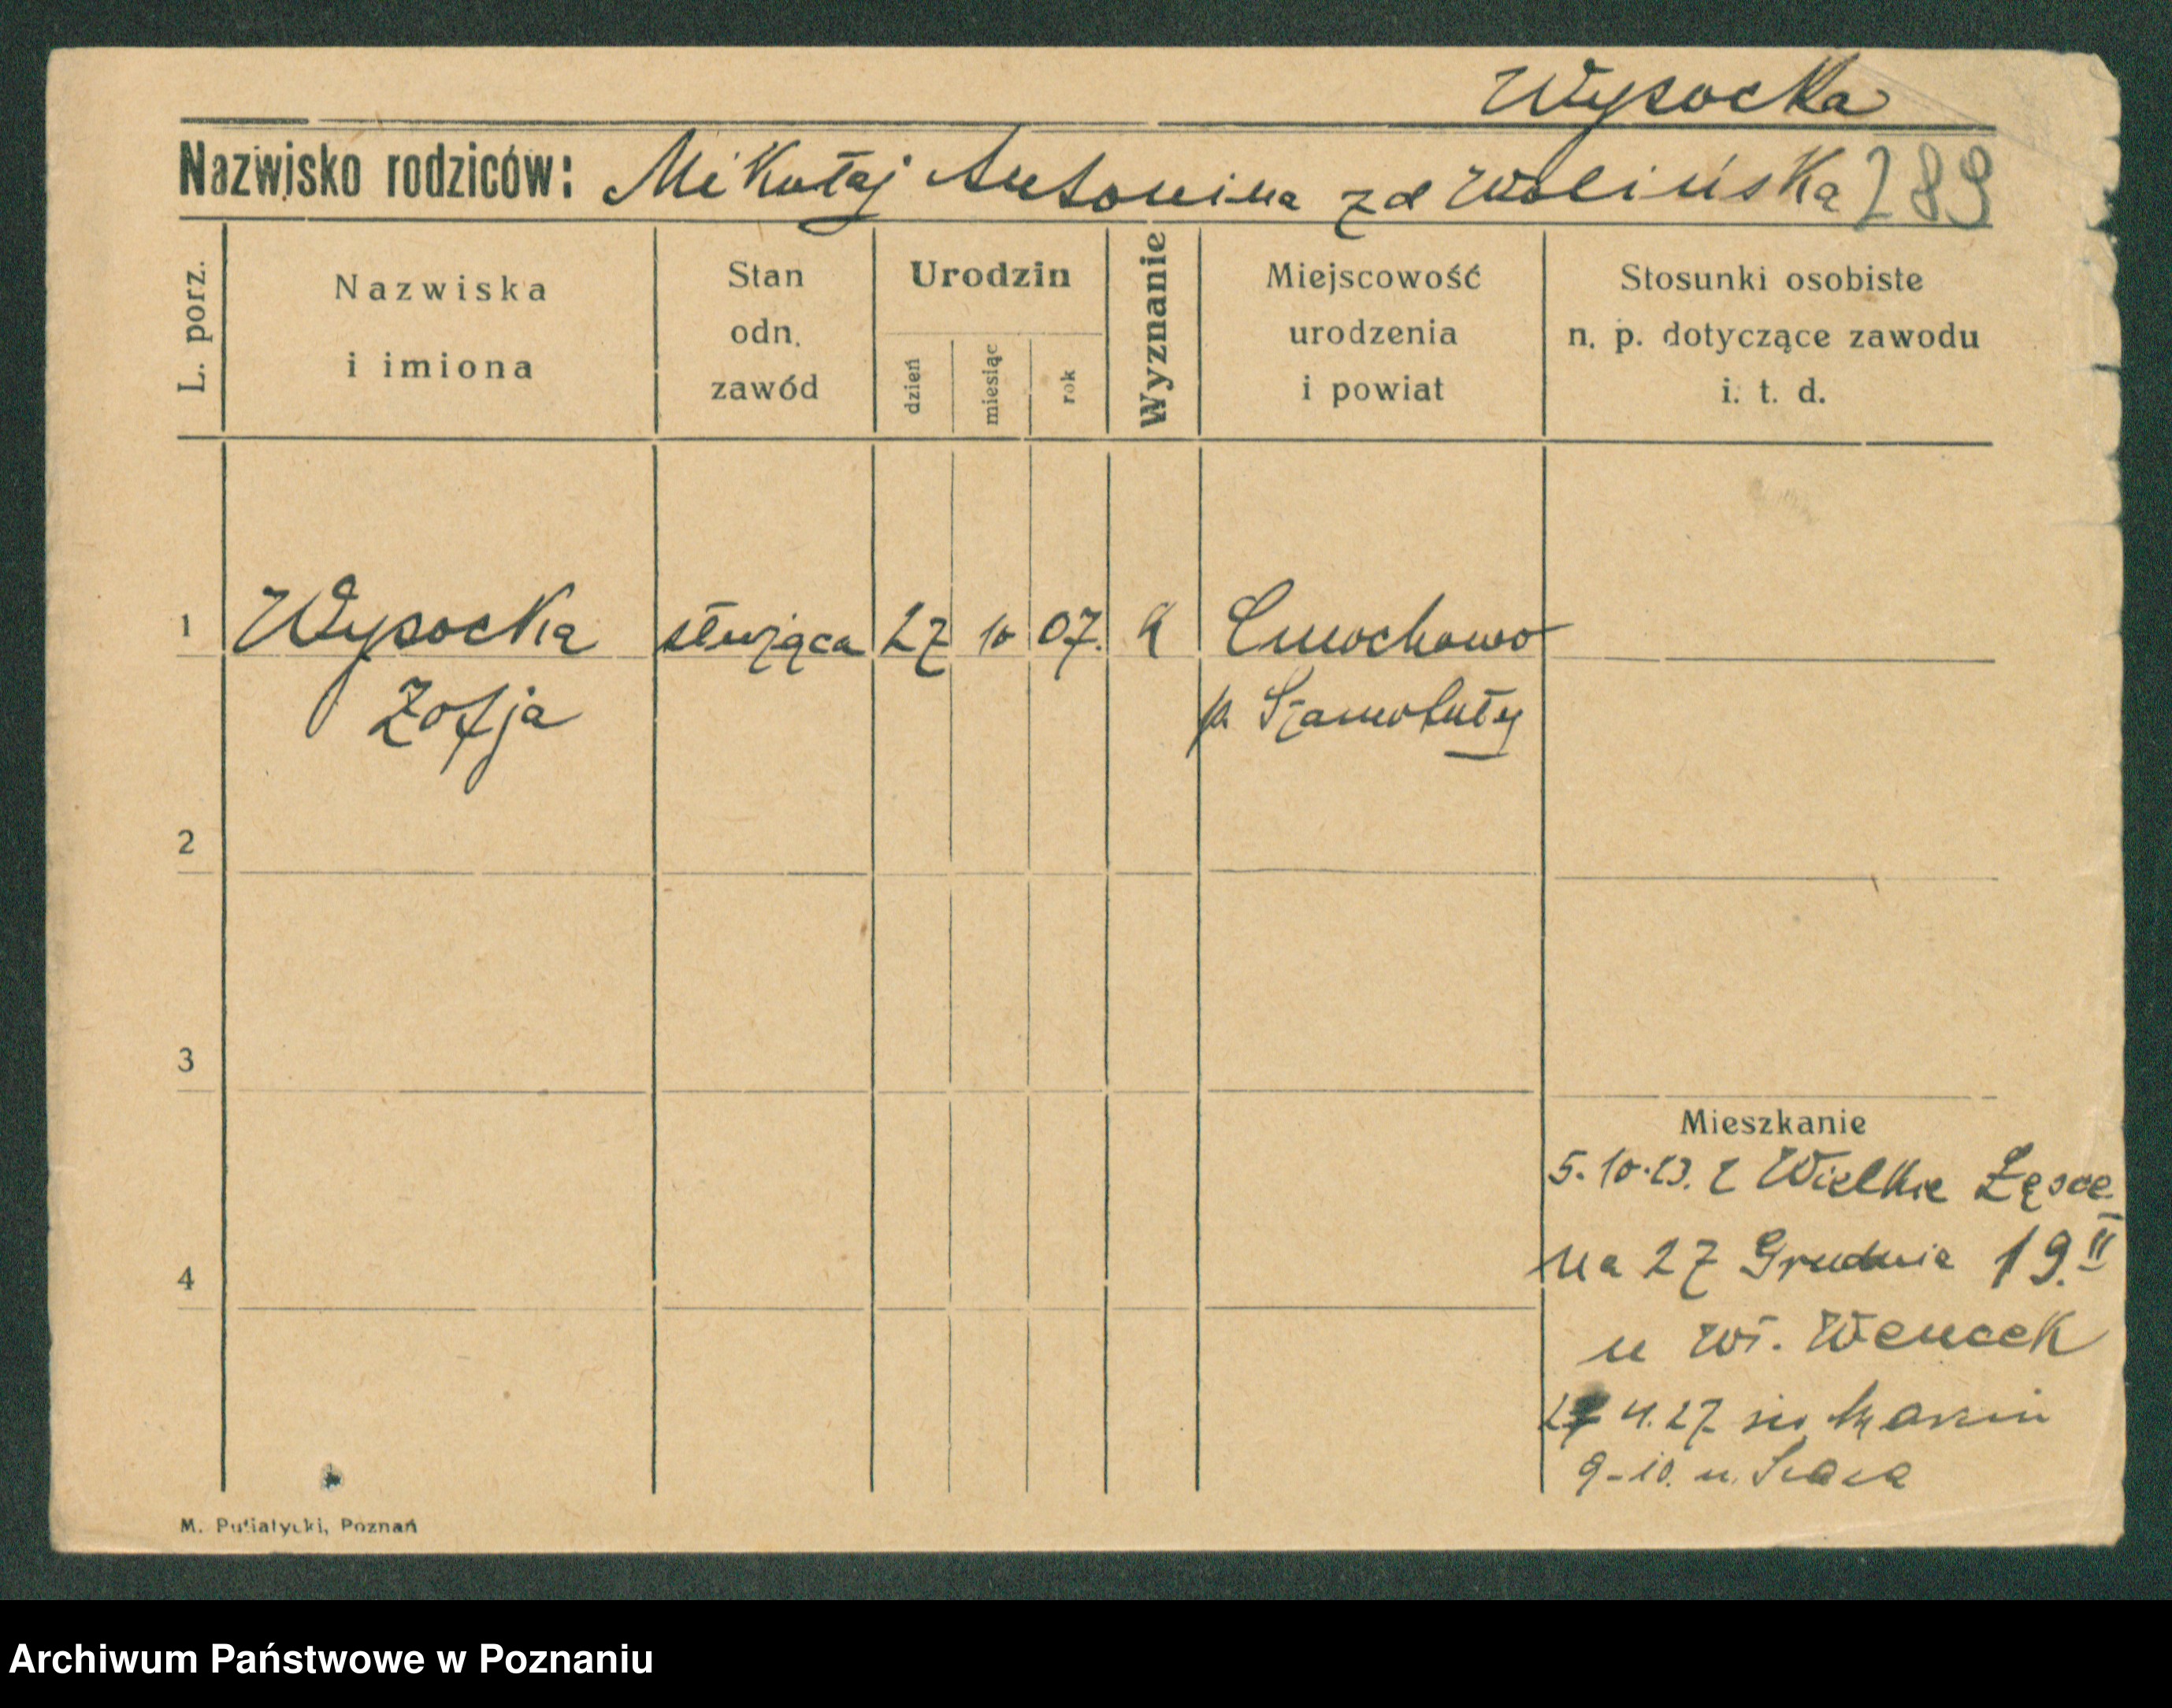 Wysocka
Nazwisko rodziców: Mikołaj Antonina zd Wolińska 289
L. porz.
Nazwiska
i imiona
Stan
odn.
zawód
Urodzin
dzień
miesiąc
rok
Wyznanie
Miejscowość
urodzenia
i powiat
Stosunki osobiste
n. p. dotyczące zawodu
i. t. d.
1 Wysocka służąca 27 10 07. k Ćmochowo
Zofja p. Szamotuły
2
3
Mieszkanie
5. 10. 23. z Wielkie
na 27 Grudnia 19. II
4
u Wł. Wencek
4. 27 św Marcin
9-10. u.
M. Putiatycki, Poznań
Archiwum Państwowe w Poznaniu